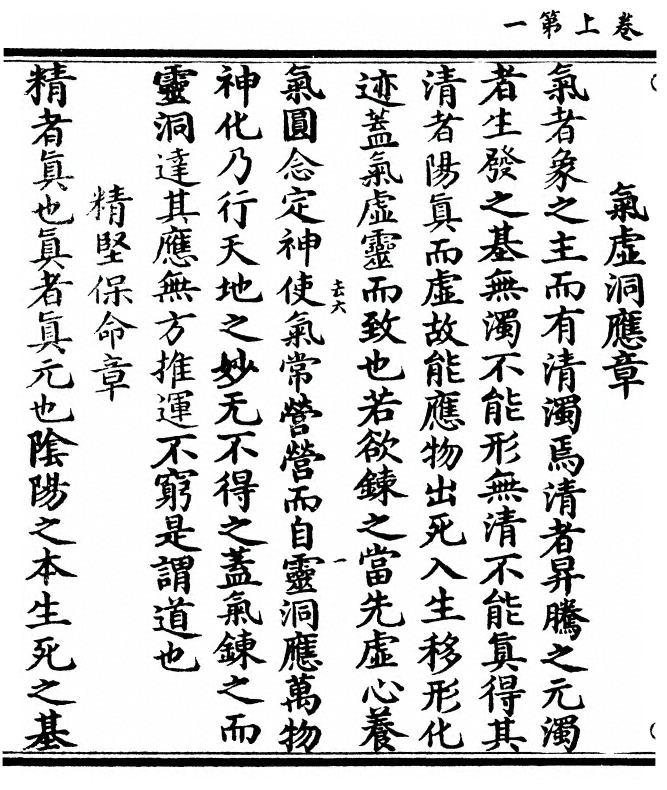 卷上第一
氣虛洞應章
氣者象之主而有清濁焉清者昇騰之元濁
者生發之基無濁不能形無清不能眞得其
清者陽眞而虛故能應物出死入生移形化
迹蓋氣虛靈而致也若欲鍊之當先虛心養
氣圓念定神使氣常營營而自靈洞應萬物
去六
一
神化乃行天地之妙无不得之蓋氣鍊之而
靈洞達其應無方推運不窮是謂道也
精堅保命章
精者眞也眞者眞元也陰陽之本生死之基